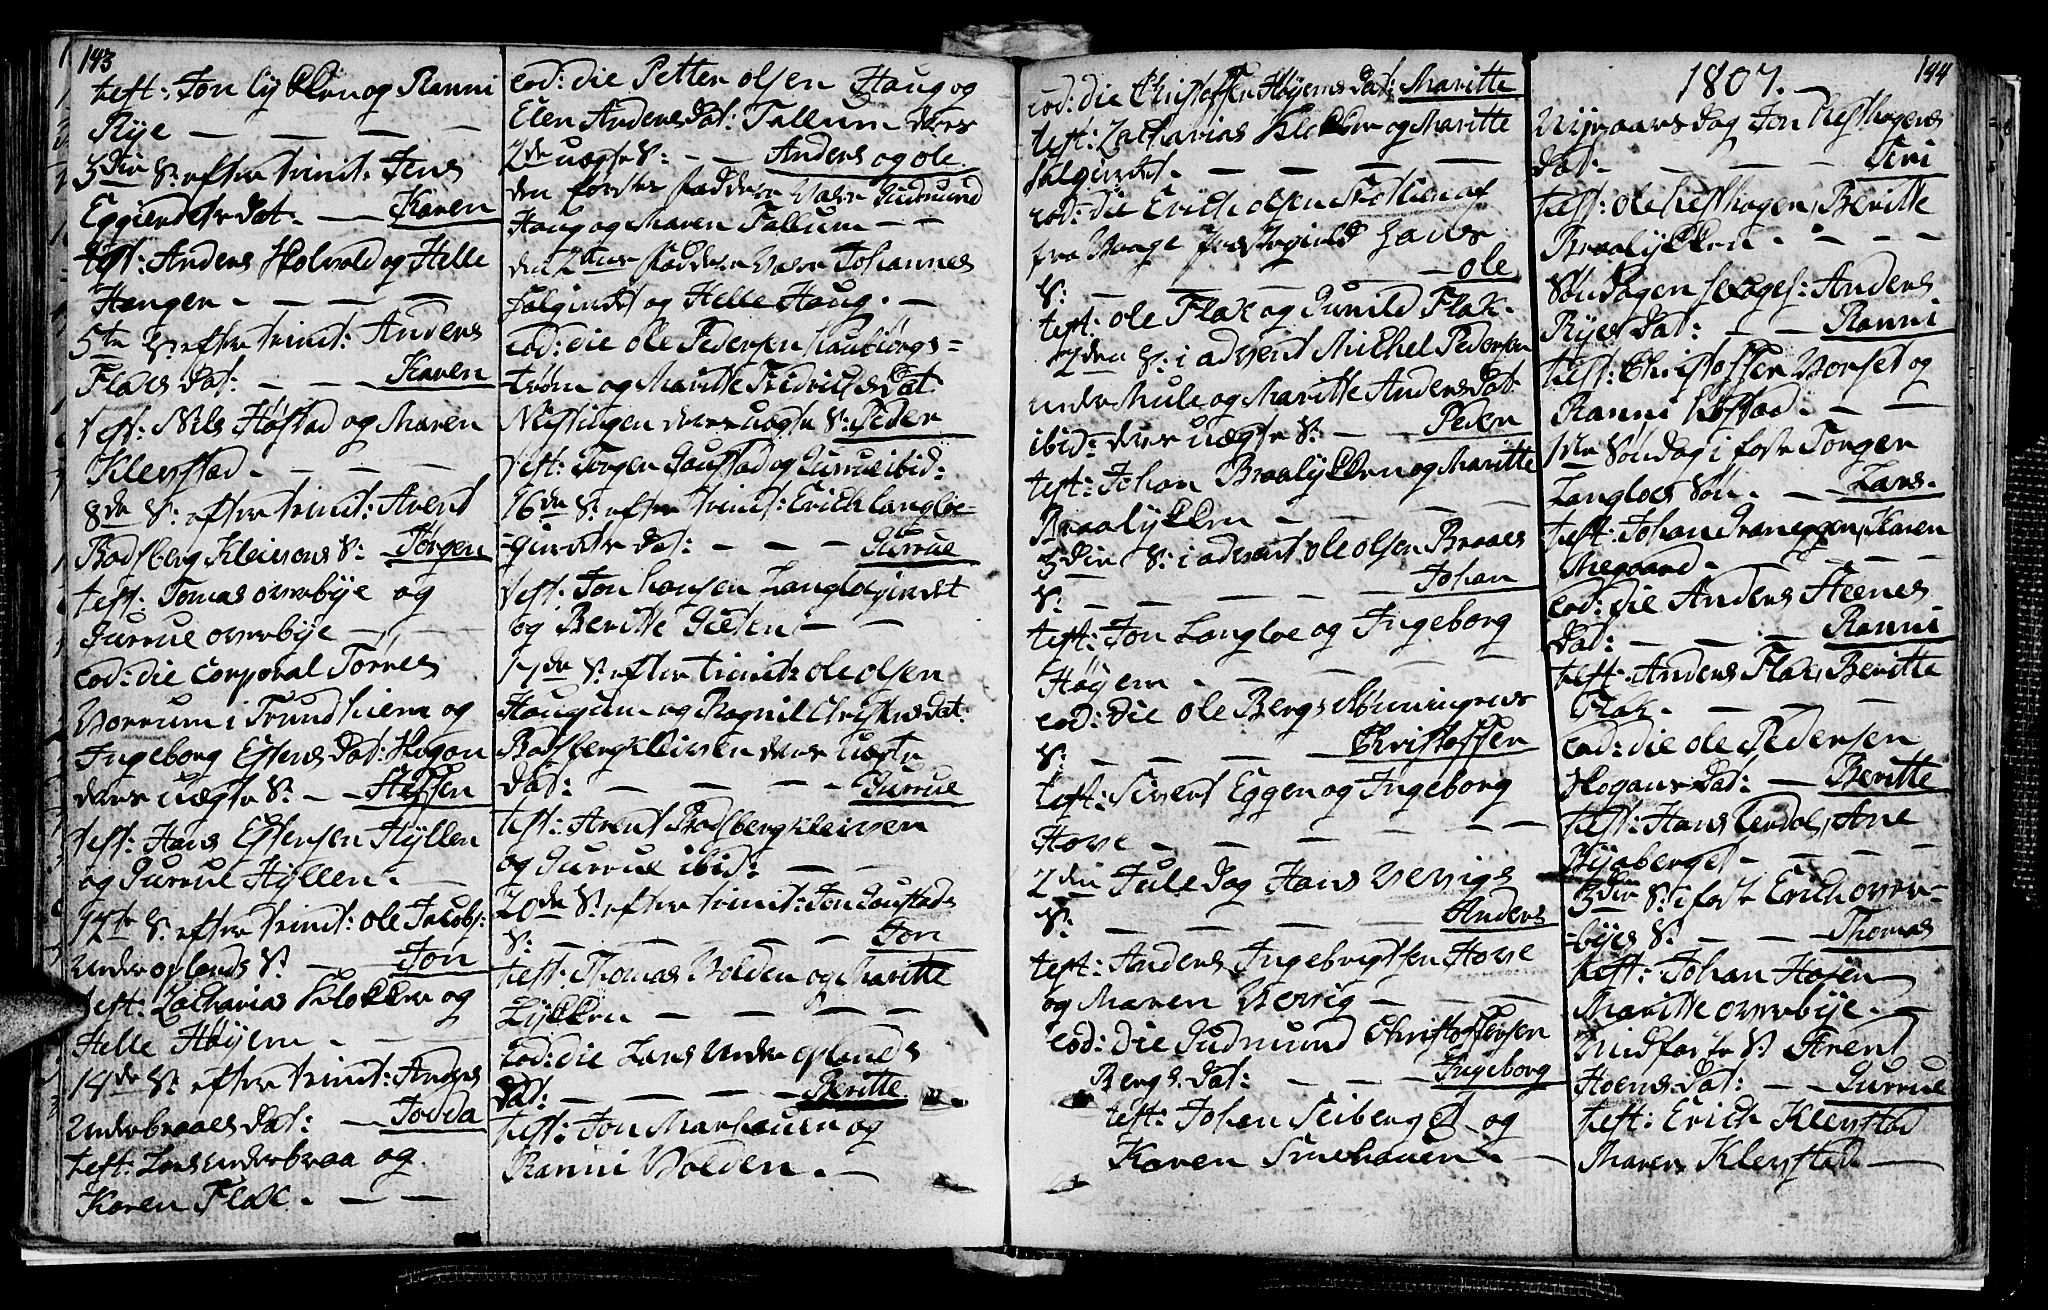 143
test: Jon Lykken og Ranni
Rye
3die S: efter trinit: Jens
Eggiendets Dat: Karen
test: Anders Holvold og Helle
Hangen
5te S: efter trinit: Anders
Flaks Dat: Karen
test: Nils Høstad og Maren
Klerstad
8de S: efter trinit: Arent
Bodsberg Kleivens S: Jørgen
test: Tomas overbye og
Gurrue overbye
eod: die Corporal Torres
Vorrum i Trundhiem og
Ingeborg Essens Dat: Hogan
deres uægte S: Steffen
test: Hans Essensen Hyllen
og Gurrue Hyllen.
12te S: efter trinit: ole Jacobs:
Underoplands S: Jon
test: Zacharias Klokker og
Helle Høyem
14de S: efter trinit: Anders
Underbraaes Dat: Jodda
test: Lars underbraa og
Karen Flak.
eod: die Petter olsen Haug og
Elen Anders Dat: Tallum deres
2de uægte S: Anders og ole.
den første Fadder Vare Gudmund
Haug og Maren Tallum
den 2den Fadder Vare Johannes
Selgindet og Helle Haug.
eod: die ole Pedersen
og Maritte Fridrichs Dat
Nessingen deres uægte S: Peder
test: Jørgen Gaustad og Gurrue ibid:
16de S: efter trinit: Erich Langloe-
-gindets Dat: Gurrue
test: Jon Hansen Langloegindet
og Beritte Gieten
17de S: efter trinit: ole olsen
Haugum og Ragnil Christens Dat:
Bodsbergkleiven deres uægte
Dat: Gurrue
test: Arent Bodsbergkleiven
og Gurrue ibid:
20de S: efter trinit: Jon Gaustads
S: Jon
test: Thomas Volden og Maritte
Lykken
eod: die Lars Underoplands
Dat: Beritte
test: Jon Marhauen og
Ranni Volden.
eod: die Christoffer Høyems Dat: Maritte
test: Zacharias Klokker og Maritte
Selgindet.
eod: die Erich olsen
fra Vaage
S: ole
test: ole Flak og Gunild Flak.
2den S: i advent Michel Pedersen
under Mule og Maritte Anders Dat:
ibid: deres uægte S: Peder
test: Johan Braalykken og Maritte
Braalykken
3die S: i advent ole olsen Braaes
S: Johan
test: Jon Langloe og Ingeborg
Høyem
eod: die ole Bergs
S: Christoffer
test: Sivert Eggen og Ingeborg
Hove
2den Juledag Hans Vevigs
S: Anders
test: Anders Ingebrigtsen Hove
og Maren Vevig
eod: die Gudmund Christoffersen
Bergs Dat: Ingeborg
test: Johan Seiberg og
Karen
144
1807.
Nyeaarsdag Jon
Dat: Siri
test: ole Beritte
Braalykken
Søndagen Anders
Ryes Dat: Ranni
test: Christoffer Vorset og
Ranni Høstad.
1ste Søndag i faste Jørgen
Langloes Søn Lars.
test: Johan Karen
Megaard.
eod: die Anders Steenes
Dat: Ranni
test: Anders Flak, Beritte
Flak.
eod: die ole Pedersen
Hogans Dat: Beritte
test: Hans Ane
Nyeberget
3die S: i faste Erich over-
-byes S: Thomas
test: Johan Hoien
Maritte overbye.
Midfaste S: Arent
Hoens Dat: Gurrue
test: Erich Klerstad
Maren Klerstad